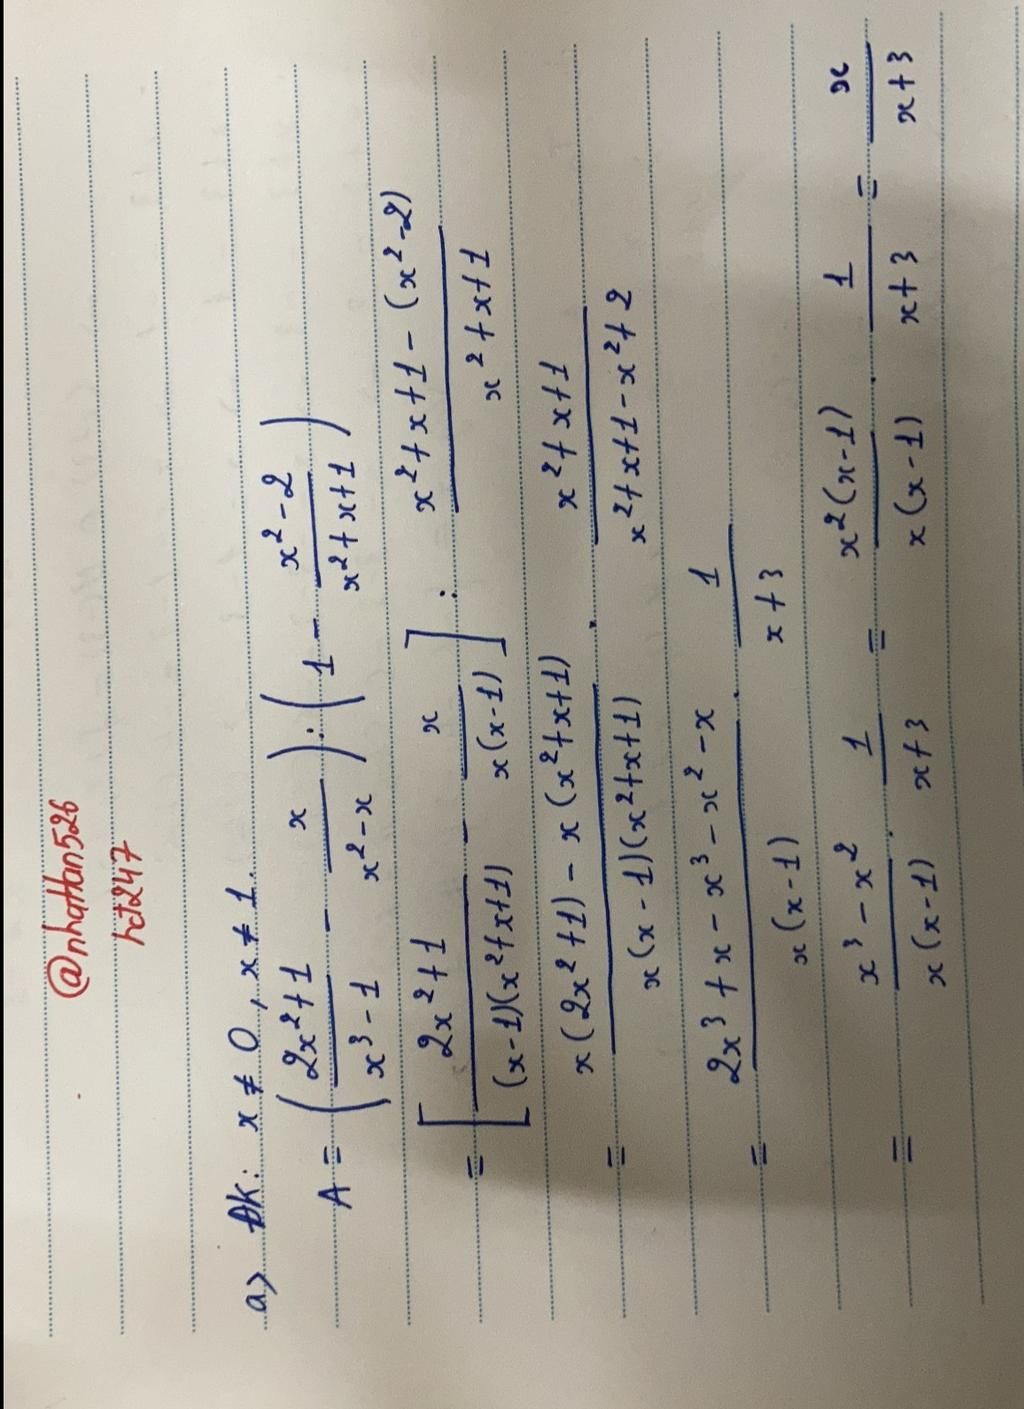 @nhaHan526
hct247
a) ĐK: x ≠ 0, x ≠ 1.
A = ( (2x²+1)/(x³-1) - x/(x²-x) ) : ( 1 - (x²-2)/(x²+x+1) )
= [ (2x²+1)/((x-1)(x²+x+1)) - x/(x(x-1)) ] : (x²+x+1-(x²-2))/(x²+x+1)
= (x(2x²+1)-x(x²+x+1))/(x(x-1)(x²+x+1)) . (x²+x+1)/(x²+x+1-x²+2)
= (2x³+x-x³-x²-x)/(x(x-1)) . 1/(x+3)
= (x³-x²)/(x(x-1)) . 1/(x+3) = (x²(x-1))/(x(x-1)) . 1/(x+3) = x/(x+3)